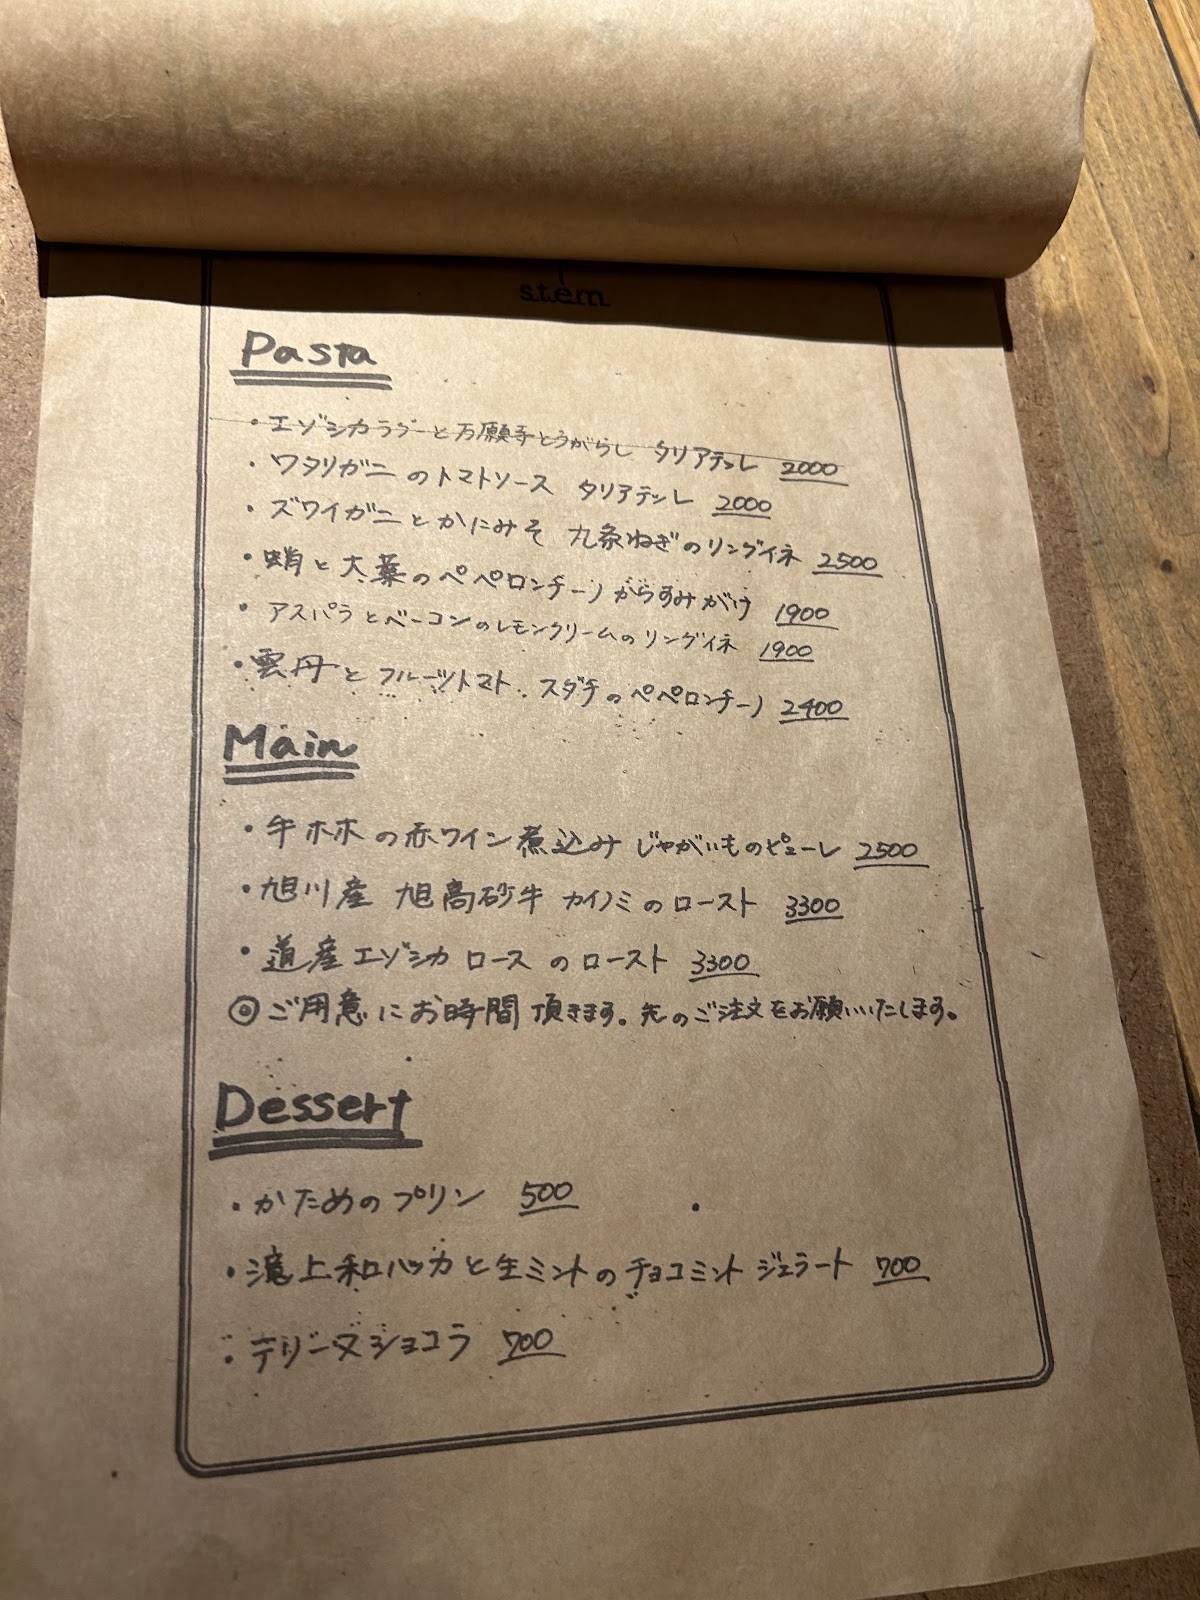 stem
Pasta
・エゾシカラグーと万願寺とうがらし タリアテッレ 2000
・ワタリガニのトマトソース タリアテッレ 2000
・ズワイガニとかにみそ 九条ねぎのリングイネ 2500
・蛸と大葉のペペロンチーノ からすみがけ 1900
・アスパラとベーコンのレモンクリームのリングイネ 1900
・雲丹とフルーツトマト、スダチのペペロンチーノ 2400
Main
・牛ホホの赤ワイン煮込み じゃがいものピューレ 2500
・旭川産 旭高砂牛 カイノミのロースト 3300
・道産エゾシカ ロースのロースト 3300
◎ご用意にお時間頂きます。先のご注文をお願いいたします。
Dessert
・かためのプリン 500
・滝上和ハッカと生ミントのチョコミントジェラート 700
・テリーヌショコラ 700